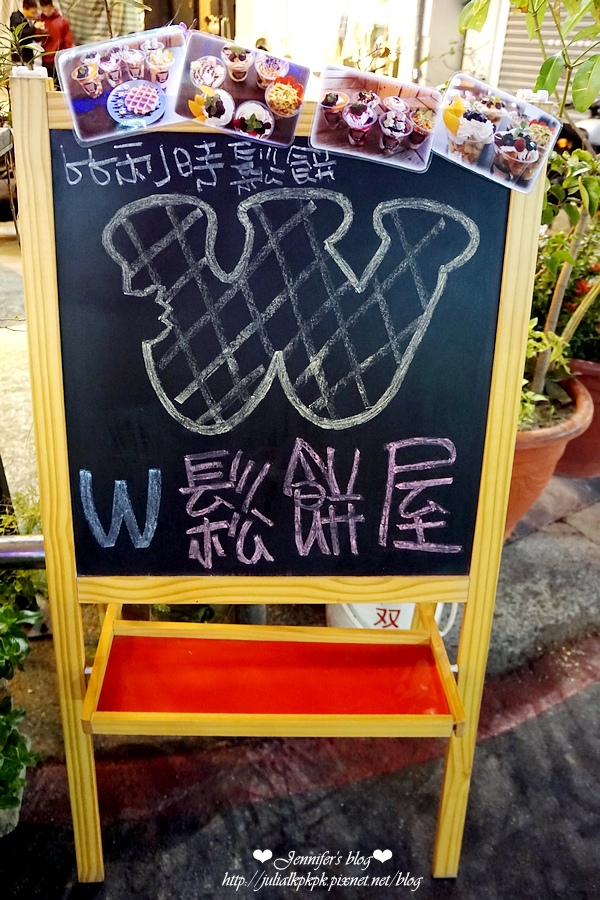 比利時鬆餅
W鬆餅屋
双
Jennifer's blog
http://julialkpkpk.pixnet.net/blog